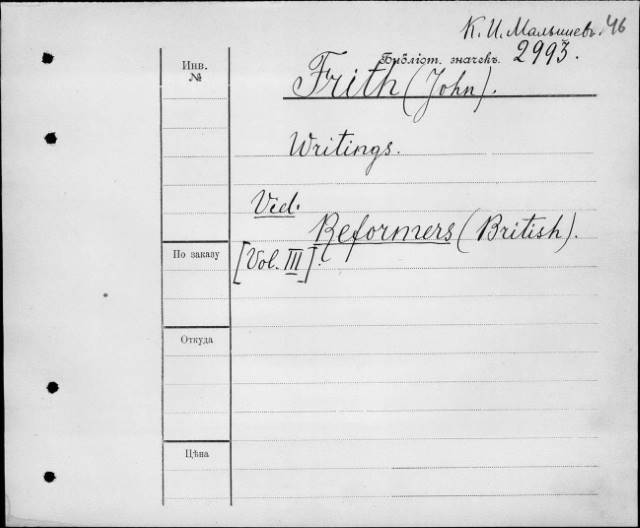 К. И. Малышевъ. 46
Библіот. значекъ. 2993.
Инв.
№
Frith (John).
Writings.
Vid.
Reformers (British).
По заказу
[Vol. III].
Откуда
Цѣна